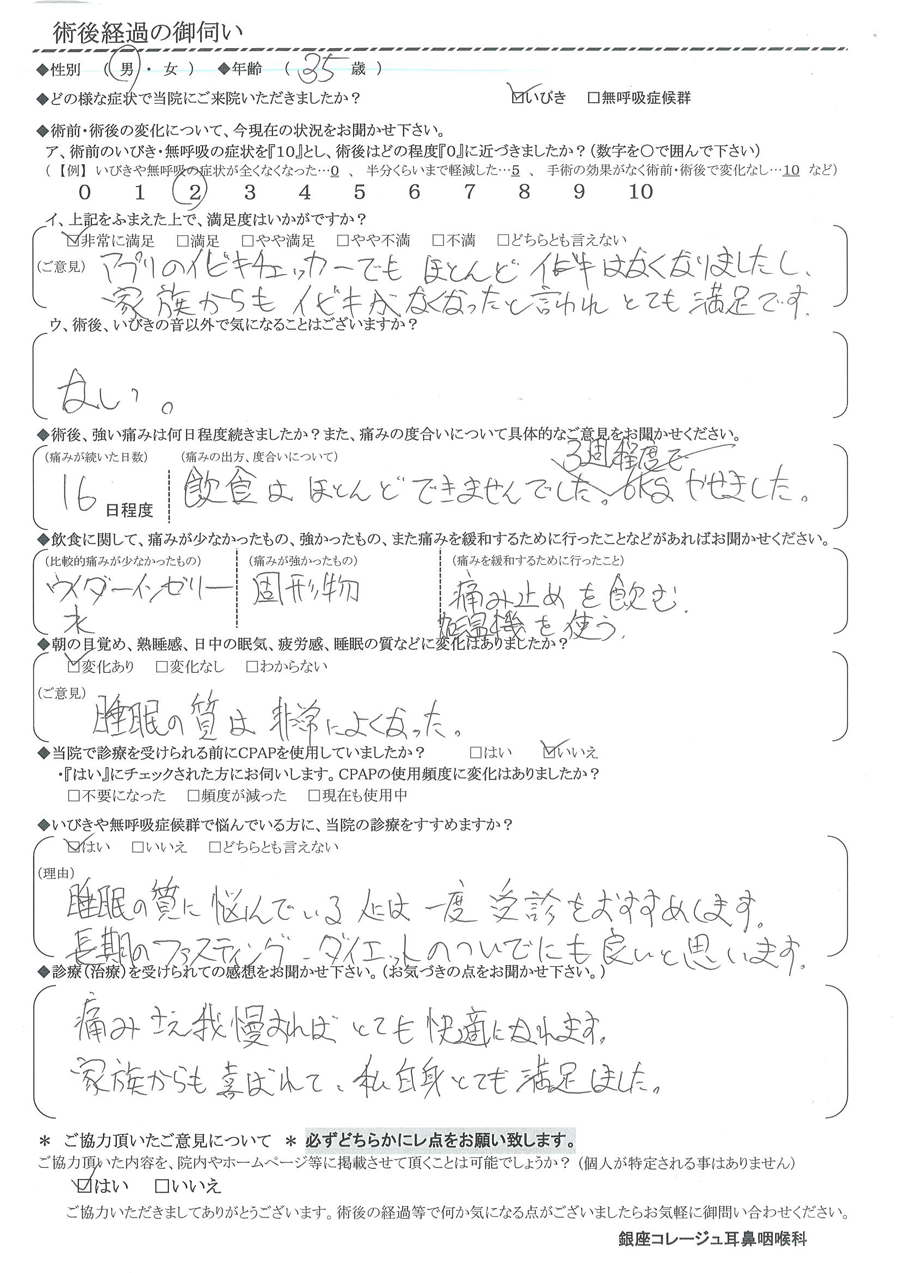 術後経過の御伺い
◆性別 （ 男 ・ 女 ） ◆年齢 （ 35 歳 ）
◆どの様な症状で当院にご来院いただきましたか？ ☑いびき □無呼吸症候群
◆術前・術後の変化について、今現在の状況をお聞かせ下さい。
ア、術前のいびき・無呼吸の症状を『10』とし、術後はどの程度『0』に近づきましたか？（数字を〇で囲んで下さい）
（【例】いびきや無呼吸の症状が全くなくなった…0 、 半分くらいまで軽減した…5 、 手術の効果がなく術前・術後で変化なし…10 など）
0 1 2 3 4 5 6 7 8 9 10
イ、上記をふまえた上で、満足度はいかがですか？
☑非常に満足 □満足 □やや満足 □やや不満 □不満 □どちらとも言えない
（ご意見） アプリのイビキチェッカーでも ほとんど イビキはなくなりましたし、
家族からも イビキがなくなったと言われ とても 満足です.
ウ、術後、いびきの音以外で気になることはございますか？
なし。
◆術後、強い痛みは何日程度続きましたか？また、痛みの度合いについて具体的なご意見をお聞かせください。
（痛みが続いた日数） （痛みの出方、度合いについて） 3週程度で
16 日程度 飲食は ほとんど できませんでした、6KG やせました。
◆飲食に関して、痛みが少なかったもの、強かったもの、また痛みを緩和するために行ったことなどがあればお聞かせください。
（比較的痛みが少なかったもの） （痛みが強かったもの） （痛みを緩和するために行ったこと）
ウイダーインゼリー 固形物 痛み止めを飲む.
水 加湿機を使う.
◆朝の目覚め、熟睡感、日中の眠気、疲労感、睡眠の質などに変化はありましたか？
☑変化あり □変化なし □わからない
（ご意見）
睡眠の質は 非常によくなった。
◆当院で診療を受けられる前にCPAPを使用していましたか？ □はい ☑いいえ
・『はい』にチェックされた方にお伺いします。CPAPの使用頻度に変化はありましたか？
□不要になった □頻度が減った □現在も使用中
◆いびきや無呼吸症候群で悩んでいる方に、当院の診療をすすめますか？
☑はい □いいえ □どちらとも言えない
（理由）
睡眠の質に 悩んでいる 人は 一度 受診をおすすめします。
長期のファスティング-ダイエットのついでにも良いと思います.
◆診療（治療）を受けられての感想をお聞かせ下さい。（お気づきの点をお聞かせ下さい。）
痛みさえ我慢すれば とても 快適になれます。
家族からも 喜ばれて、私自身とても 満足しました。
＊ ご協力頂いたご意見について ＊ 必ずどちらかにレ点をお願い致します。
ご協力頂いた内容を、院内やホームページ等に掲載させて頂くことは可能でしょうか？（個人が特定される事はありません）
☑はい □いいえ
ご協力いただきましてありがとうございます。術後の経過等で何か気になる点がございましたらお気軽に御問い合わせください。
銀座コレージュ耳鼻咽喉科